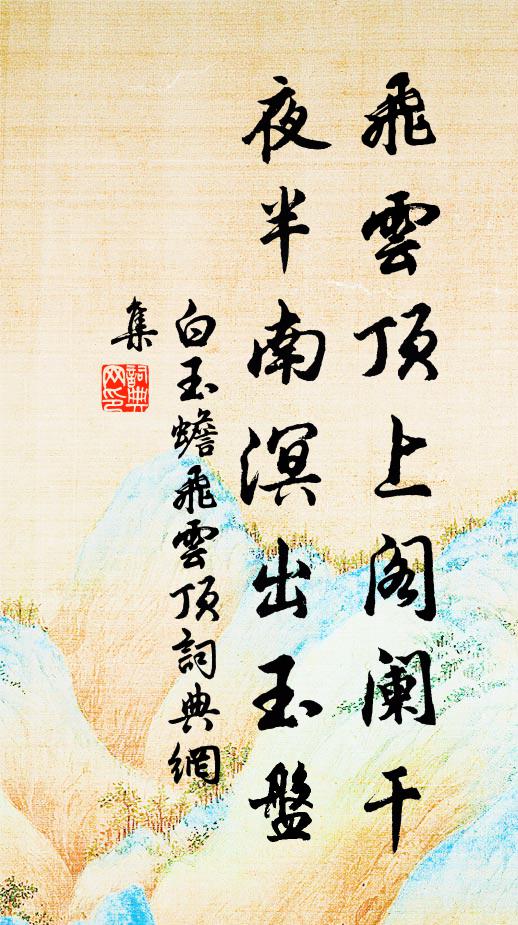 飛雲頂上閣阑干
夜半南溟出玉盤
白玉蟾飛雲頂詞典網
集
詞典
网印